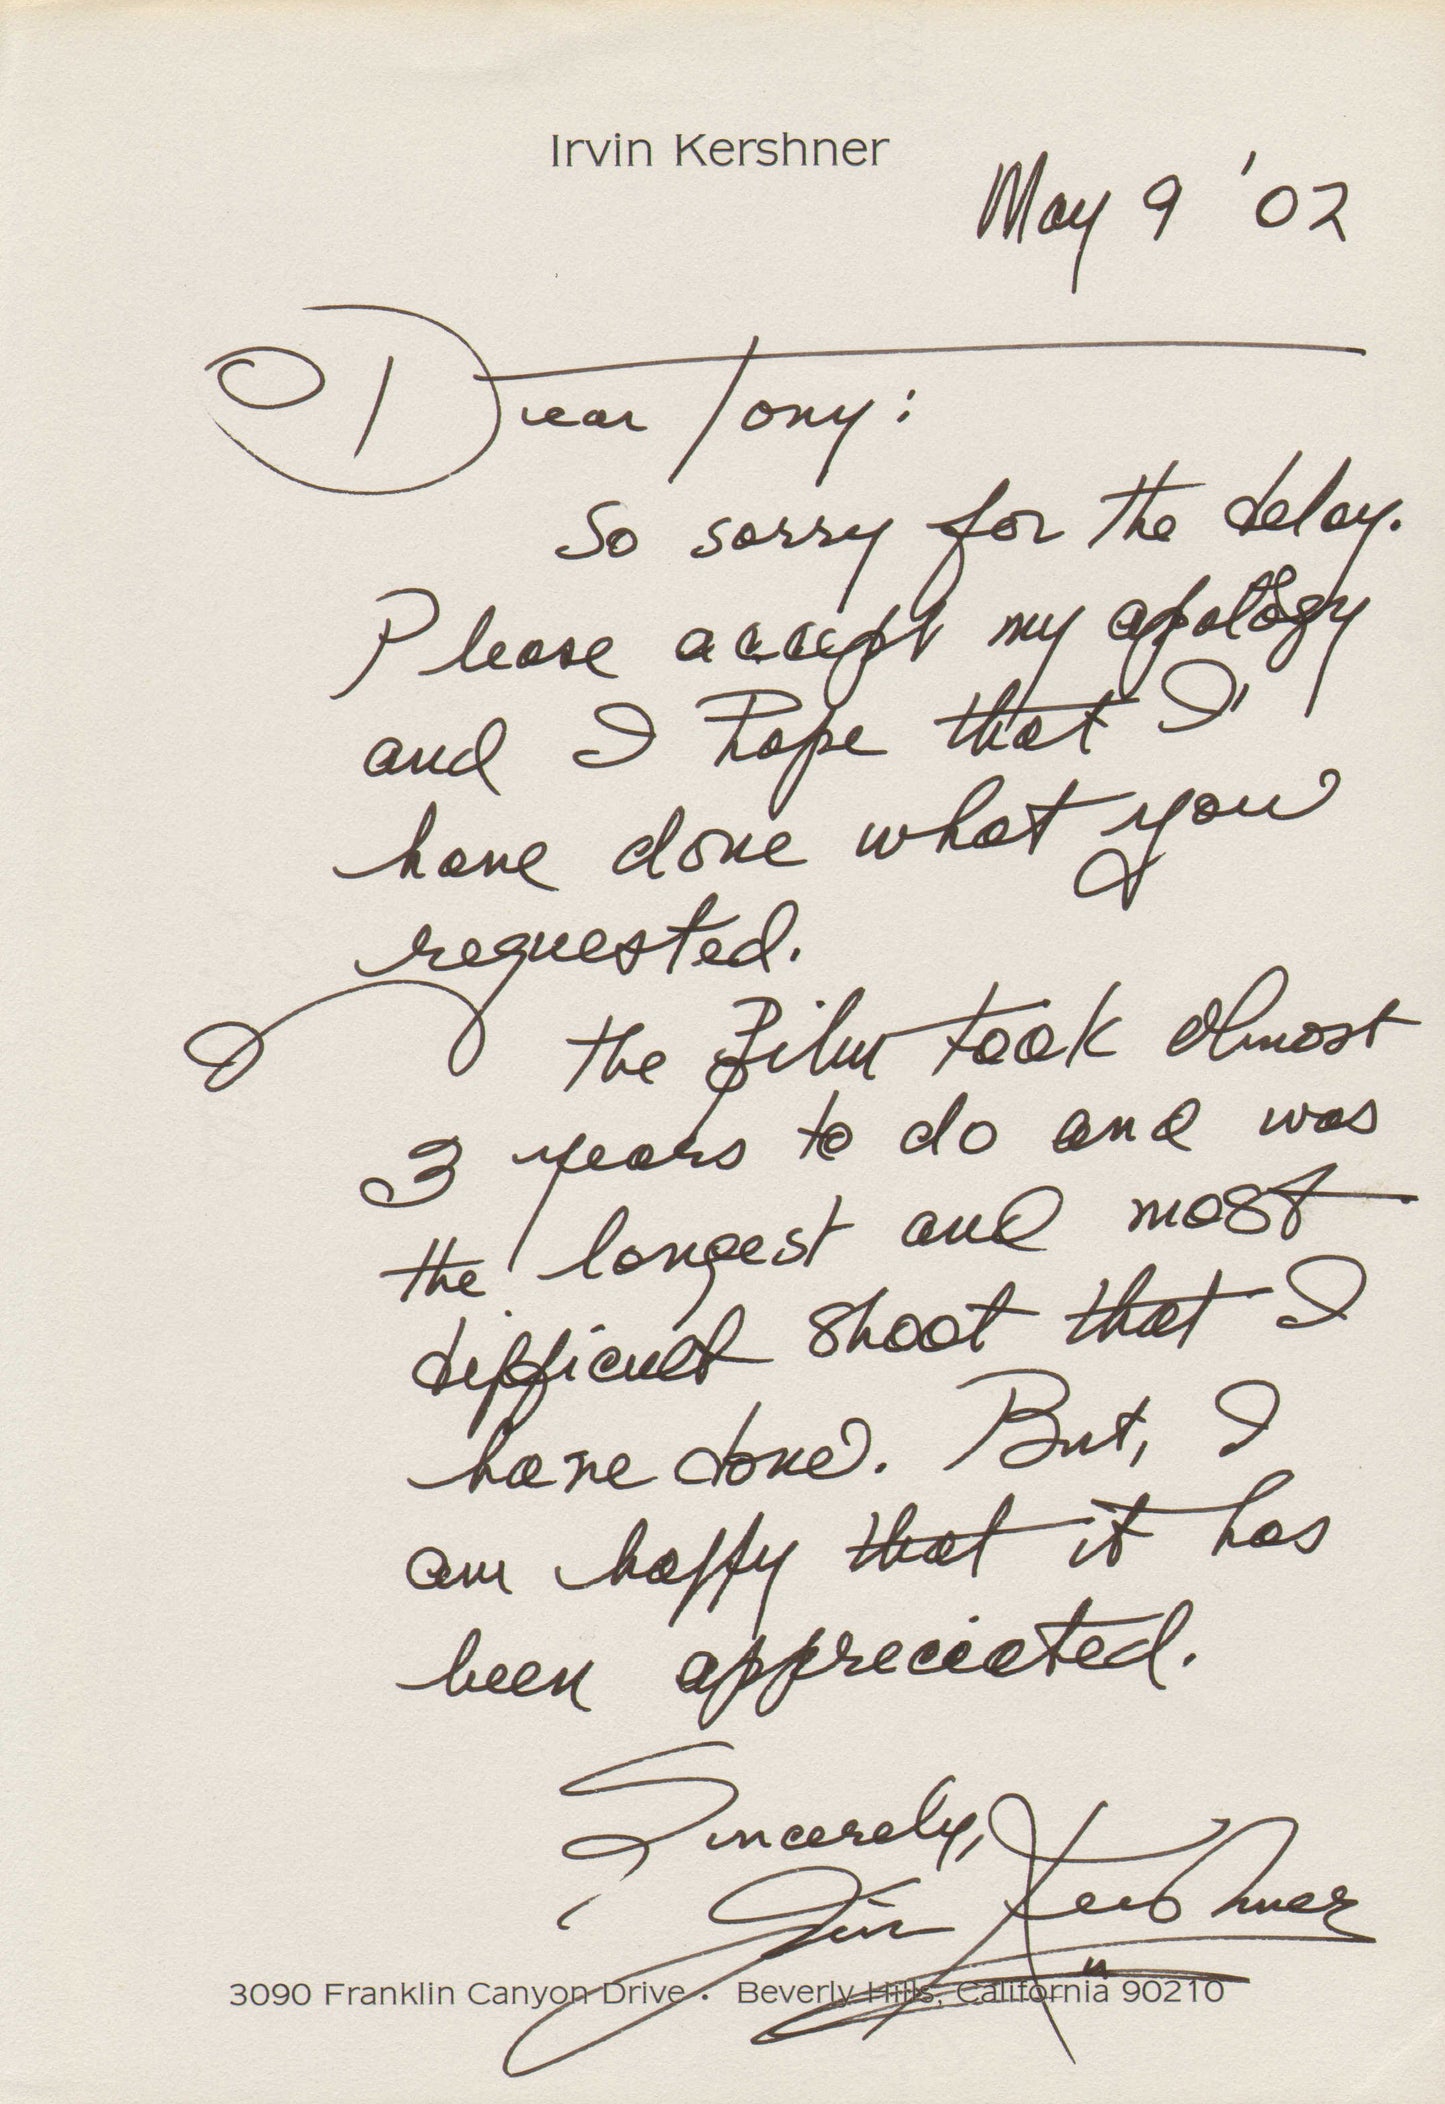 Irvin Kershner
May 9 '02
Dear Tony:
So sorry for the delay.
Please accept my apology
and I hope that I
have done what you
requested.
The Film took almost
3 years to do and was
the longest and most
difficult shoot that I
have done. But, I
am happy that it has
been appreciated.
Sincerely,
Irvin Kershner
3090 Franklin Canyon Drive • Beverly Hills, California 90210